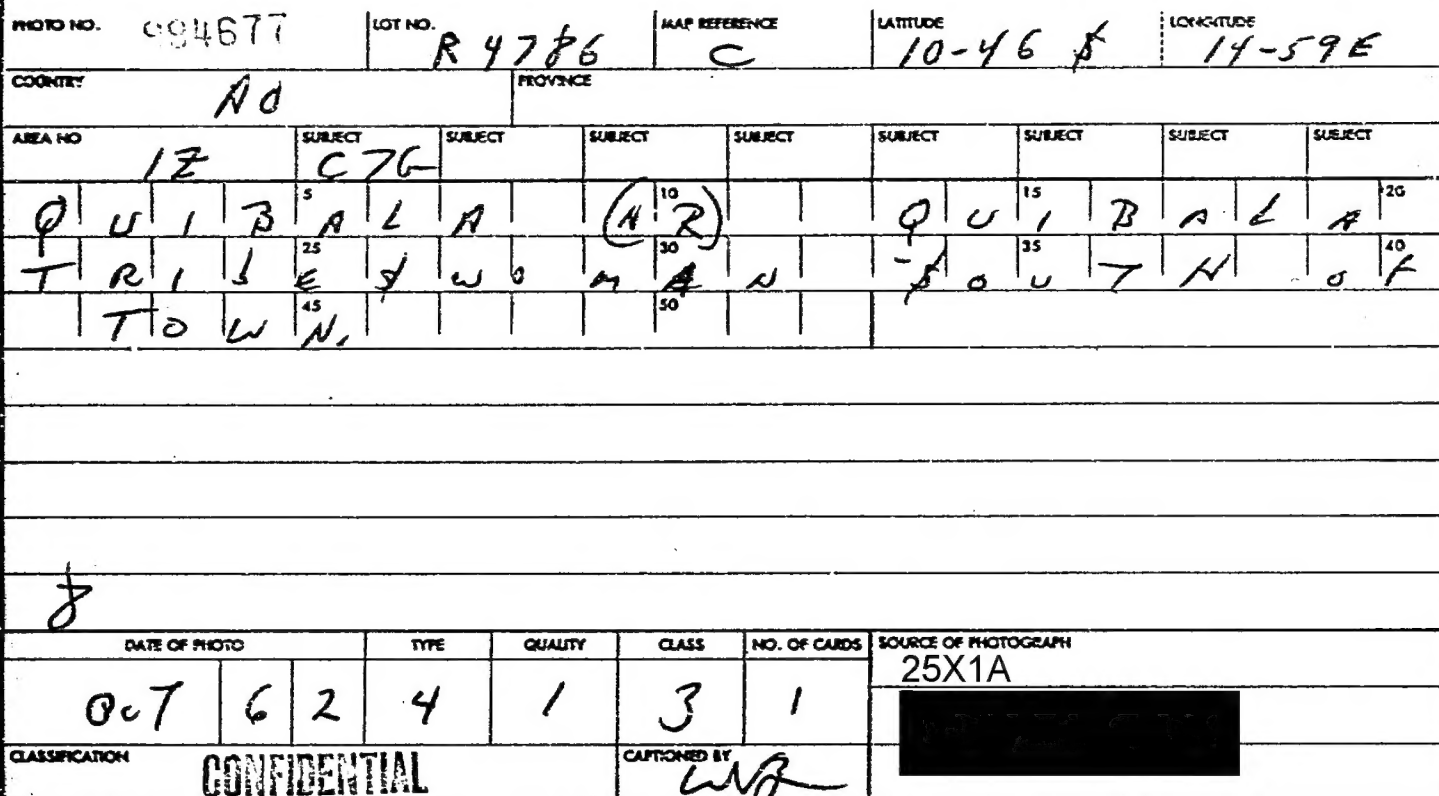 PHOTO NO. 994677 LOT NO. R 4786 MAP REFERENCE C LATITUDE 10-46 S LONGITUDE 14-59E
COUNTRY AO PROVINCE
AREA NO 1Z SUBJECT C7G SUBJECT SUBJECT SUBJECT SUBJECT SUBJECT SUBJECT SUBJECT
QUIBALA (NR) QUIBALA
5 10 15 20
TRIBESWOMAN - SOUTH OF
25 30 35 40
TOWN.
45 50
DATE OF PHOTO TYPE QUALITY CLASS NO. OF CARDS SOURCE OF PHOTOGRAPH
25X1A
OCT 62 4 1 3 1
CLASSIFICATION CONFIDENTIAL CAPTIONED BY